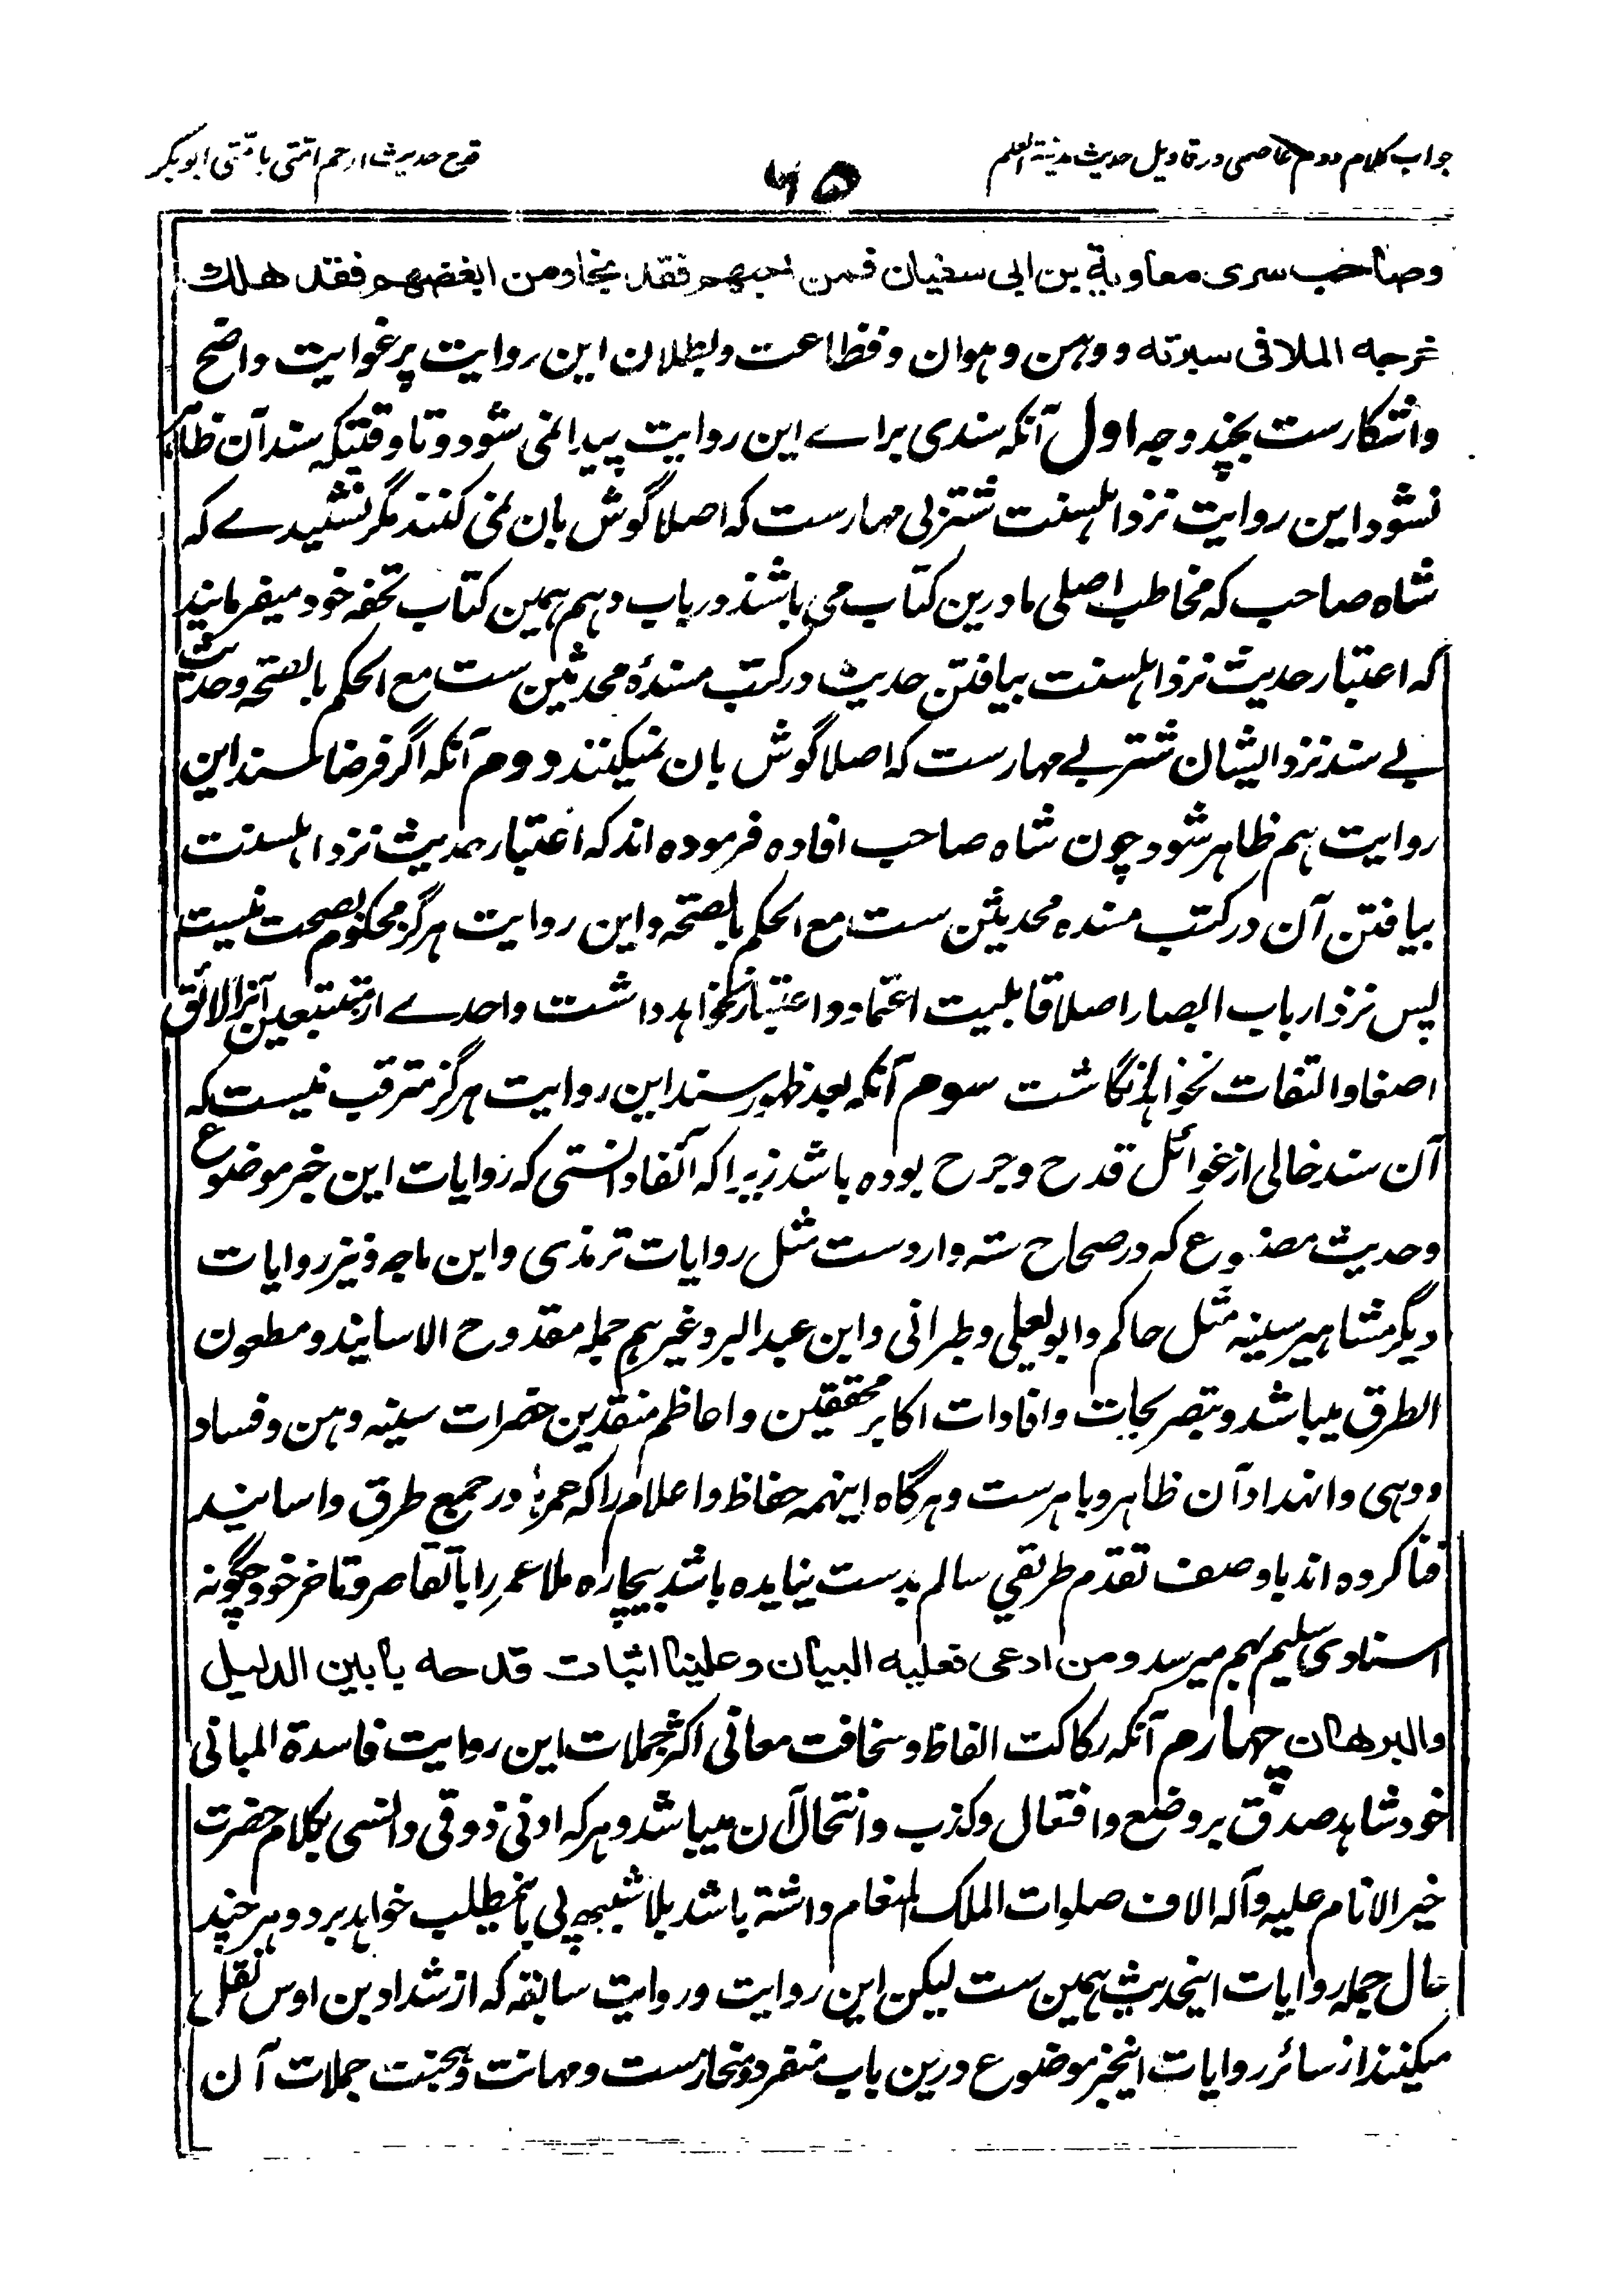 جواب کلام دوم عاصمی در تاویل حدیث مدینة العلم
۶۵
قدح حدیث ارحم امتی بامتی ابوبکر
وصاحب سری معاویة بن ابی سفیان فمن احبهم فقد نجا ومن ابغضهم فقد هلك
خرجه الملا فی سیرته و وهن و هوان و فظاعت و بطلان این روایت پر غوایت واضح
و اشکارست بچند وجه اول آنکه سندی برای این روایت پیدا نمی شود و تا وقتیکه سند آن ظاهر
نشود این روایت نزد اهلسنت شتر بی مهارست که اصلا گوش بان نمی کنند مگر نشنیدے که
شاه صاحب که مخاطب اصلی ما درین کتاب می باشند در باب دهم همین کتاب تحفه خود میفرمایند
که اعتبار حدیث نزد اهلسنت بیافتن حدیث در کتب مسندهٔ محدثین ست مع الحکم بالصحة و حدیث
بے سند نزد ایشان شتر بے مهارست که اصلا گوش بان نمیکنند دوم آنکه اگر فرضا سند این
روایت هم ظاهر شود چون شاه صاحب افاده فرموده اند که اعتبار حدیث نزد اهلسنت
بیافتن آن در کتب مسنده محدثین ست مع الحکم بالصحة و این روایت هرگز محکوم بصحت نیست
پس نزد ارباب ابصار اصلا قابلیت اعتماد و اعتبار نخواهد داشت و احدے از متتبعین آنرا لائق
اصغا و التفات نخواهد نگاشت سوم آنکه بعد ظهور سند این روایت هرگز مترقب نیست که
آن سند خالی از غوائل قدح و جرح بوده باشد زیرا که آنفا دانستی که روایات این خبر موضوع
و حدیث مصنوع که در صحاح سته واردست مثل روایات ترمذی و ابن ماجه و نیز روایات
دیگر مشاهیر سنیه مثل حاکم و ابو یعلی و طبرانی و ابن عبد البر و غیرهم جمله مقدوح الاسانید و مطعون
الطرق میباشد و بتصریحات و افادات اکابر محققین و اعاظم منقدین حضرات سنیه وهن و فساد
و وهی و انهداد آن ظاهر و باهرست و هرگاه اینهمه حفاظ و اعلام را که عمرها در جمع طرق و اسانید
فنا کرده اند با وصف تقدم طریقی سالم بدست نیایده باشد بیچاره ملا عمر را با تقاصر و تاخر خود چگونه
اسنادی سلیم بهم میرسد ومن ادعی فعلیه البیان وعلینا اثبات قدحه بابین الدلیل
والبرهان چهارم آنکه رکاکت الفاظ و سخافت معانی اکثر جملات این روایت فاسدة المبانی
خود شاهد صدق بر وضع و افتعال و کذب و انتحال آن میباشد و هر که ادنی ذوقی و انسی بکلام حضرت
خیر الانام علیه و آله الاف صلوات الملک المنعام داشته باشد بلا شبهه پی باینمطلب خواهد برد و هر چند
حال جمله روایات اینحدیث همین ست لیکن این روایت و روایت سابقه که از شداد بن اوس نقل
میکنند از سائر روایات اینخبر موضوع درین باب منفرد و منحازست و مهانت و هجنت جملات آن